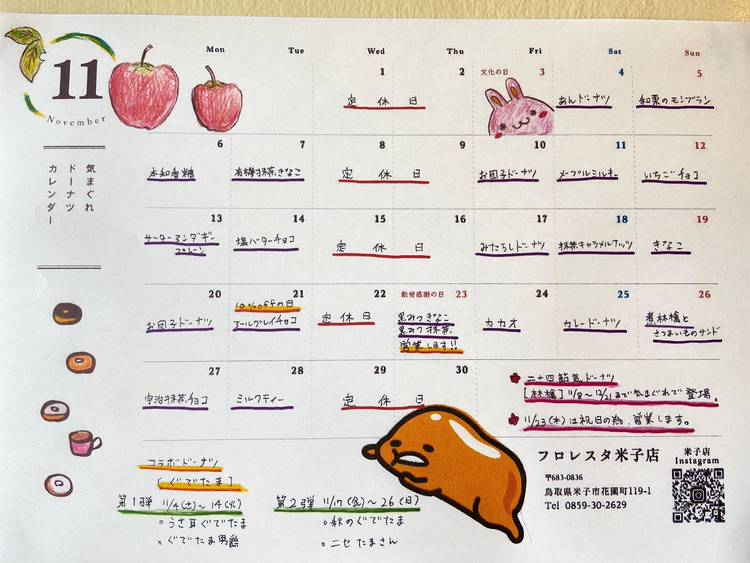 11
November
気まぐれ
ドーナツ
カレンダー
Mon Tue Wed Thu Fri Sat Sun
1 2 文化の日 3 4 5
定休日 あんドーナツ 和栗のモンブラン
6 7 8 9 10 11 12
本和香糖 有機抹茶きなこ 定休日 お団子ドーナツ メープルミルキー いちごチョコ
13 14 15 16 17 18 19
サーターアンダギー
プレーン
塩バターチョコ 定休日 みたらしドーナツ 抹茶キャラメルナッツ きなこ
20 21 22 勤労感謝の日 23 24 25 26
お団子ドーナツ
10%offの日
アールグレイチョコ
定休日
黒みつきなこ
黒みつ抹茶
営業します!!
カカオ カレードーナツ
煮林檎と
さつまいものサンド
27 28 29 30
宇治抹茶チョコ ミルクティー 定休日
二十四節気ドーナツ
[林檎] 11/8〜11/21まで気まぐれで登場。
11/23(木)は祝日の為、営業します。
コラボドーナツ
[ぐでたま]
第1弾 11/4(土)〜14(火)
。うさ耳ぐでたま
。ぐでたま男爵
第2弾 11/17(金)〜26(日)
。秋のぐでたま
。ニセたまさん
フロレスタ米子店
〒683-0836
鳥取県米子市花園町119-1
Tel 0859-30-2629
米子店
Instagram